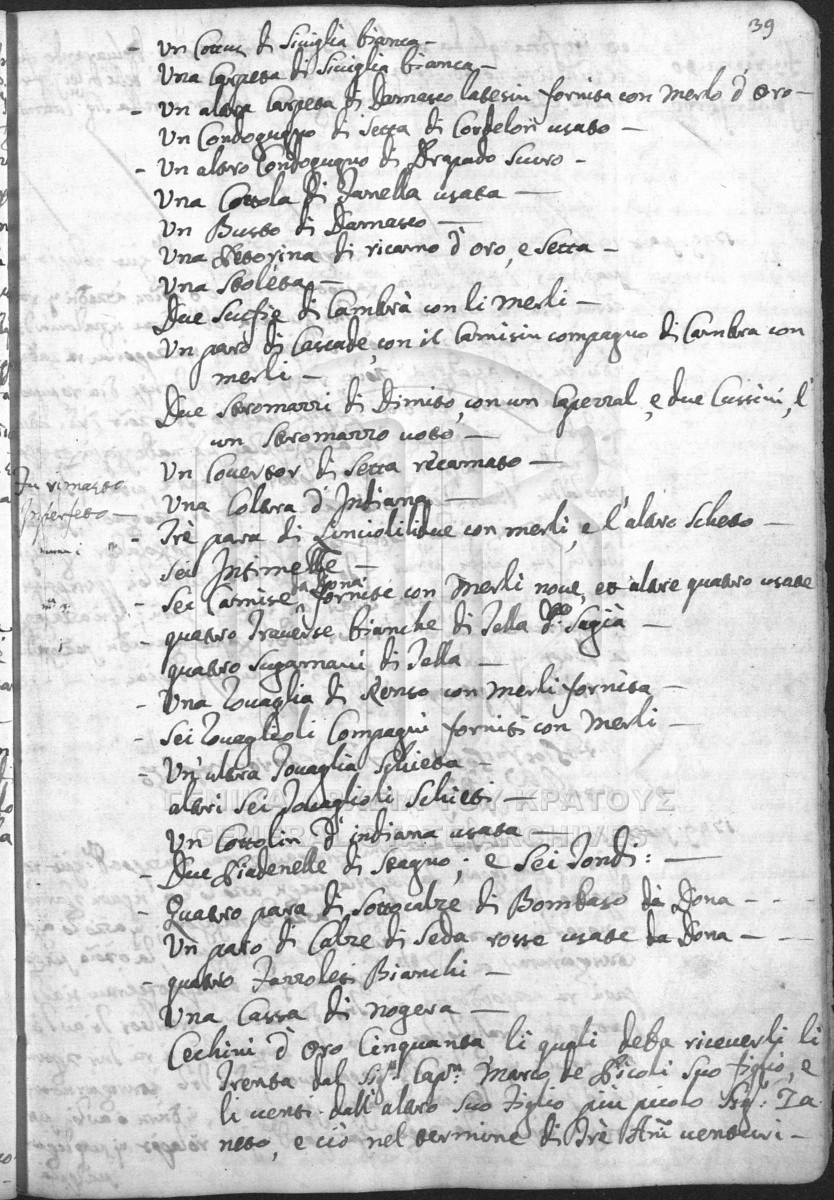 39
- Un Cottus di Siviglia bianca -
Una Carpeta di Siviglia bianca -
- Un altra Carpeta di Damasco latesin fornita con Merlo d'Oro -
Un Condogugno di Setta di Cordelon usato -
- Un altro Condogugno di Drapado Scuro -
Una Cottola di Fanella usata -
Un Busto di Damasco -
Una Pettorina di ricamo d'Oro, e Setta -
Una Stoleta -
Due Scufie di Cambrà con li Merli -
Un paro di Cascade, con il Camisin compagno di Cambra con
merli -
Due Stromazzi di Dimito, con un Caperzal, e due Cussini, e
un Stromazzo voto -
Un Covertor di Setta recamato -
Fu rimasto
Imperfetto -
Una Coltra d'Indiana -
- Trè para di Linciolili due con merli, e l'altro Schetto -
Sei Intimelle -
- Sei Camise da Dona fornite con Merli nove, et altre quattro usate
- quattro Traverse bianche di Tella
quattro sugamani di Tella -
- Una Tovaglia di Renso con Merli fornita -
- Sei Tovaglioli Compagni forniti con Merli -
- Un'altra Tovaglia Schietta -
altri Sei Tovaglioli Schietti -
ΓΕΝΙΚΑ ΑΡΧΕΙΑ ΤΟΥ ΚΡΑΤΟΥΣ
GENERAL STATE ARCHIVES
Un Cottolin d'indiana usata -
- Due Piadenelle di Stagno; e Sei Tondi: -
- Quattro para di Sottocalze di Bombaso da Dona - - -
Un paro di Calze di Seda rosse usate da Dona - - -
- quattro Fazzoleti Bianchi -
Una Cassa di nogera -
Cechini d'Oro Cinquanta li quali debba riceverli li
Trenta dal Sigr. Capn. Marco de Nicoli suo figlio, e
li venti dall'altro suo figlio piu picolo Sigr. Za
neto, e ciò nel termine di Trè Anni venturi -